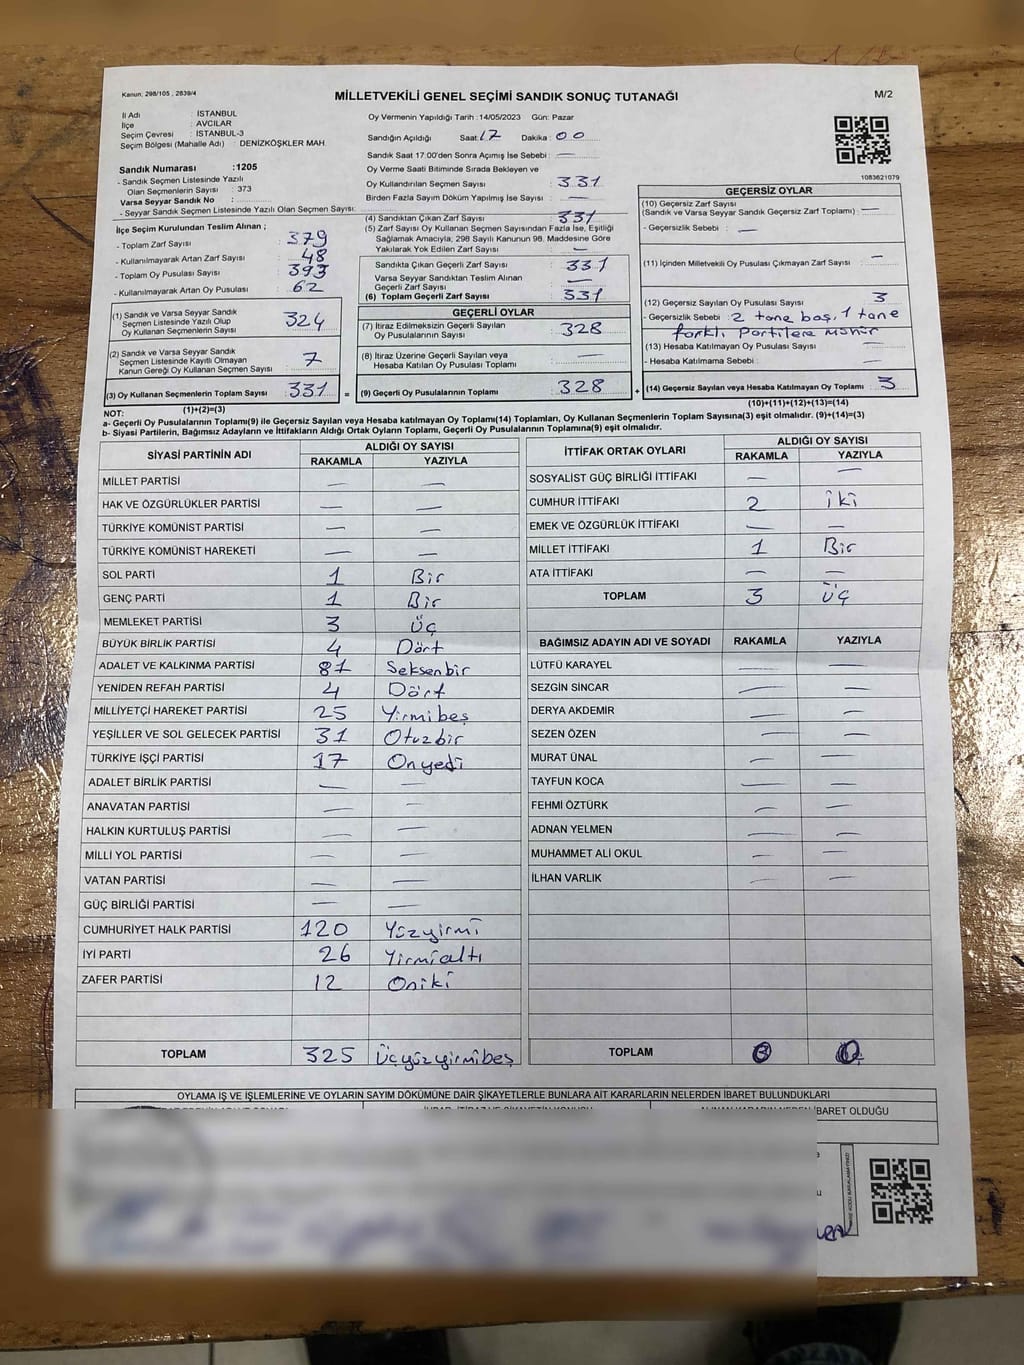 Kanun; 298/105 , 2839/4
MİLLETVEKİLİ GENEL SEÇİMİ SANDIK SONUÇ TUTANAĞI
M/2
İl Adı : İSTANBUL
İlçe : AVCILAR
Seçim Çevresi : İSTANBUL-3
Seçim Bölgesi (Mahalle Adı) : DENİZKÖŞKLER MAH.
Sandık Numarası :1205
- Sandık Seçmen Listesinde Yazılı
Olan Seçmenlerin Sayısı : 373
Varsa Seyyar Sandık No :
- Seyyar Sandık Seçmen Listesinde Yazılı Olan Seçmen Sayısı:
İlçe Seçim Kurulundan Teslim Alınan ;
- Toplam Zarf Sayısı : 379
- Kullanılmayarak Artan Zarf Sayısı : 48
- Toplam Oy Pusulası Sayısı : 393
- Kullanılmayarak Artan Oy Pusulası : 62
(1) Sandık ve Varsa Seyyar Sandık
Seçmen Listesinde Yazılı Olup
Oy Kullanan Seçmenlerin Sayısı : 324
(2) Sandık ve Varsa Seyyar Sandık
Seçmen Listesinde Kayıtlı Olmayan
Kanun Gereği Oy Kullanan Seçmen Sayısı : 7
(3) Oy Kullanan Seçmenlerin Toplam Sayısı : 331 =
(1)+(2)=(3)
Oy Vermenin Yapıldığı Tarih : 14/05/2023 Gün: Pazar
Sandığın Açıldığı Saat: 17 Dakika : 00
Sandık Saat 17.00'den Sonra Açımış İse Sebebi : —
Oy Verme Saati Bitiminde Sırada Bekleyen ve
Oy Kullandırılan Seçmen Sayısı : 331
Birden Fazla Sayım Döküm Yapılmış İse Sayısı : —
(4) Sandıktan Çıkan Zarf Sayısı : 331
(5) Zarf Sayısı Oy Kullanan Seçmen Sayısından Fazla İse, Eşitliği
Sağlamak Amacıyla; 298 Sayılı Kanunun 98. Maddesine Göre
Yakılarak Yok Edilen Zarf Sayısı : —
Sandıkta Çıkan Geçerli Zarf Sayısı : 331
Varsa Seyyar Sandıktan Teslim Alınan
Geçerli Zarf Sayısı : —
(6) Toplam Geçerli Zarf Sayısı : 331
GEÇERLİ OYLAR
(7) İtiraz Edilmeksizin Geçerli Sayılan
Oy Pusulalarının Sayısı : 328
(8) İtiraz Üzerine Geçerli Sayılan veya
Hesaba Katılan Oy Pusulalarının Toplamı : —
(9) Geçerli Oy Pusulalarının Toplamı : 328 +
1083621079
GEÇERSİZ OYLAR
(10) Geçersiz Zarf Sayısı
(Sandık ve Varsa Seyyar Sandık Geçersiz Zarf Toplamı) : —
- Geçersizlik Sebebi : —
(11) İçinden Milletvekili Oy Pusulası Çıkmayan Zarf Sayısı : —
(12) Geçersiz Sayılan Oy Pusulası Sayısı : 3
- Geçersizlik Sebebi : 2 tane boş, 1 tane
farklı Partilere mühür
(13) Hesaba Katılmayan Oy Pusulası Sayısı : —
- Hesaba Katılmama Sebebi : —
(14) Geçersiz Sayılan veya Hesaba Katılmayan Oy Toplamı : 3
(10)+(11)+(12)+(13)=(14)
NOT:
a- Geçerli Oy Pusulalarının Toplamı(9) ile Geçersiz Sayılan veya Hesaba katılmayan Oy Toplamı(14) Toplamları, Oy Kullanan Seçmenlerin Toplam Sayısına(3) eşit olmalıdır. (9)+(14)=(3)
b- Siyasi Partilerin, Bağımsız Adayların ve İttifakların Aldığı Ortak Oyların Toplamı, Geçerli Oy Pusulalarının Toplamına(9) eşit olmalıdır.
SİYASİ PARTİNİN ADI ALDIĞI OY SAYISI
RAKAMLA YAZIYLA
MİLLET PARTİSİ — —
HAK VE ÖZGÜRLÜKLER PARTİSİ — —
TÜRKİYE KOMÜNİST PARTİSİ — —
TÜRKİYE KOMÜNİST HAREKETİ — —
SOL PARTİ 1 Bir
GENÇ PARTİ 1 Bir
MEMLEKET PARTİSİ 3 Üç
BÜYÜK BİRLİK PARTİSİ 4 Dört
ADALET VE KALKINMA PARTİSİ 81 Seksenbir
YENİDEN REFAH PARTİSİ 4 Dört
MİLLİYETÇİ HAREKET PARTİSİ 25 Yirmibeş
YEŞİLLER VE SOL GELECEK PARTİSİ 31 Otuzbir
TÜRKİYE İŞÇİ PARTİSİ 17 Onyedi
ADALET BİRLİK PARTİSİ — —
ANAVATAN PARTİSİ — —
HALKIN KURTULUŞ PARTİSİ — —
MİLLİ YOL PARTİSİ — —
VATAN PARTİSİ — —
GÜÇ BİRLİĞİ PARTİSİ — —
CUMHURİYET HALK PARTİSİ 120 Yüzyirmi
İYİ PARTİ 26 Yirmialtı
ZAFER PARTİSİ 12 Oniki
TOPLAM 325 Üçyüzyirmibeş
İTTİFAK ORTAK OYLARI ALDIĞI OY SAYISI
RAKAMLA YAZIYLA
SOSYALİST GÜÇ BİRLİĞİ İTTİFAKI — —
CUMHUR İTTİFAKI 2 iki
EMEK VE ÖZGÜRLÜK İTTİFAKI — —
MİLLET İTTİFAKI 1 Bir
ATA İTTİFAKI — —
TOPLAM 3 Üç
BAĞIMSIZ ADAYIN ADI VE SOYADI RAKAMLA YAZIYLA
LÜTFÜ KARAYEL — —
SEZGİN SİNCAR — —
DERYA AKDEMİR — —
SEZEN ÖZEN — —
MURAT ÜNAL — —
TAYFUN KOCA — —
FEHMİ ÖZTÜRK — —
ADNAN YELMEN — —
MUHAMMET ALİ OKUL — —
İLHAN VARLIK — —
TOPLAM
OYLAMA İŞ VE İŞLEMLERİNE VE OYLARIN SAYIM DÖKÜMÜNE DAİR ŞİKAYETLERLE BUNLARA AİT KARARLARIN NELERDEN İBARET BULUNDUKLARI
İBARET OLDUĞU